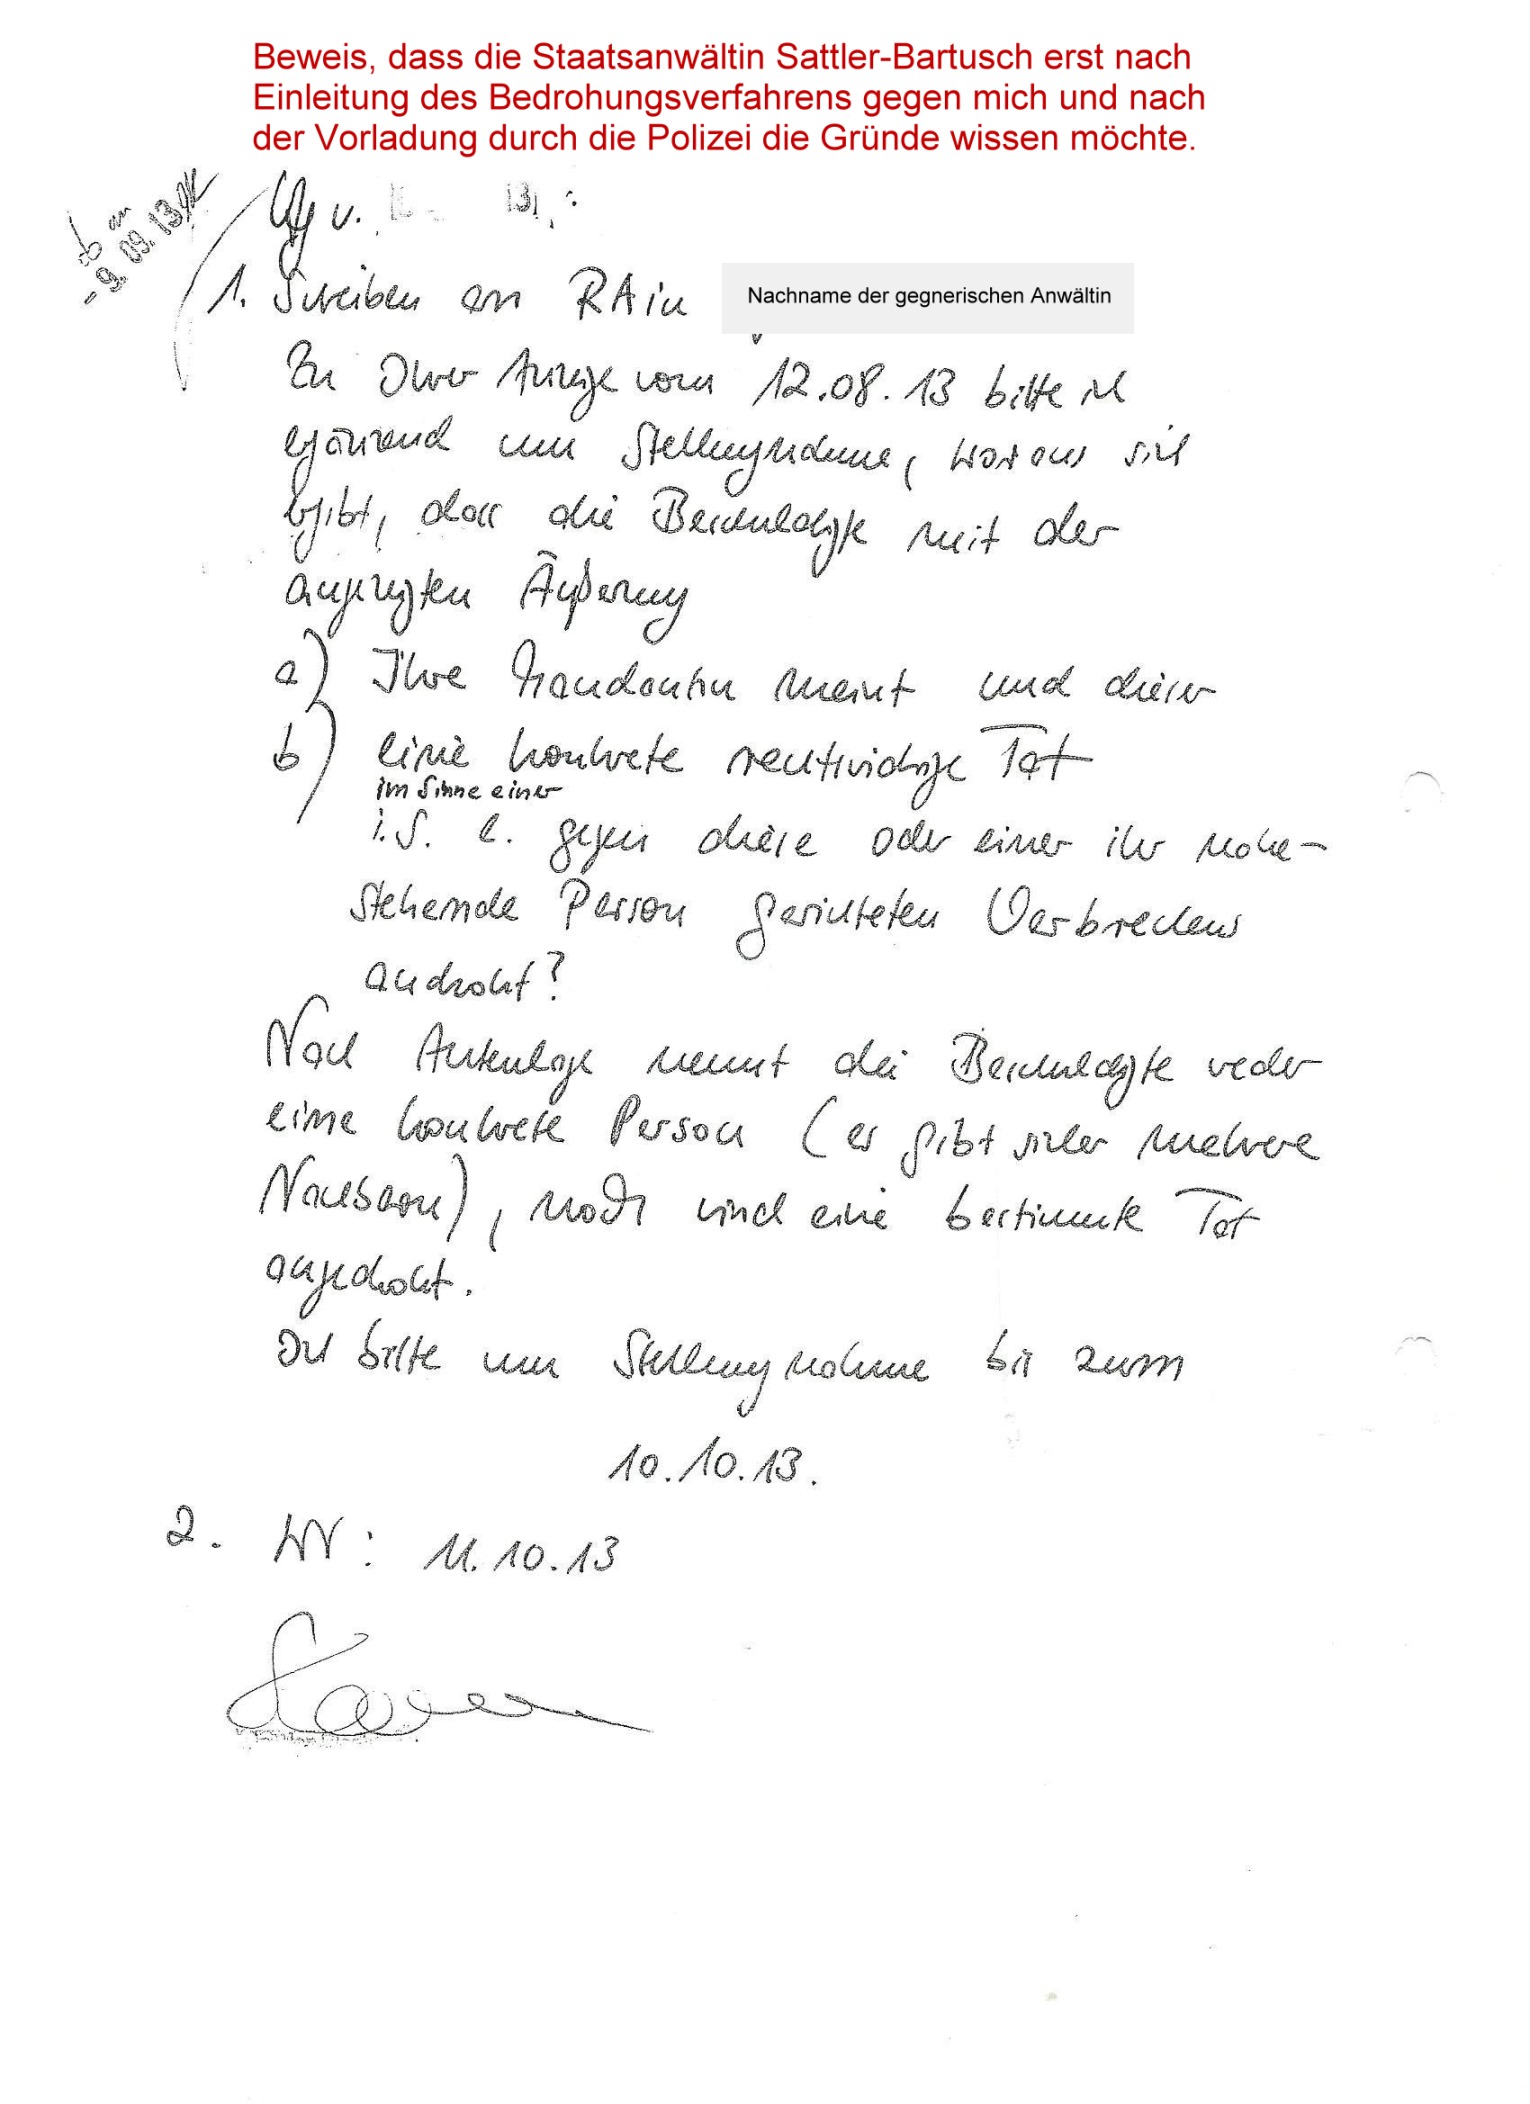 Beweis, dass die Staatsanwältin Sattler-Bartusch erst nach
Einleitung des Bedrohungsverfahrens gegen mich und nach
der Vorladung durch die Polizei die Gründe wissen möchte.
ab an
- 9. 09. 13
Vfg v. 13 :
1. Schreiben an RAin
Nachname der gegnerischen Anwältin
Zu Ihrer Anzeige vom 12.08.13 bitte ich
ergänzend um Stellungnahme, woraus sich
ergibt, dass die Beschuldigte mit der
angezeigten Äußerung
a) Ihre Mandantin meint und dieser
b) eine konkrete rechtswidrige Tat
im Sinne einer
i.S. e. gegen diese oder einer ihr nahe-
stehende Person gerichteten Verbrechens
androht?
Nach Aktenlage nennt die Beschuldigte weder
eine konkrete Person (es gibt sicher mehrere
Nachbarn), noch wird eine bestimmte Tat
angedroht.
Ich bitte um Stellungnahme bis zum
10.10.13.
2. WV: 11.10.13